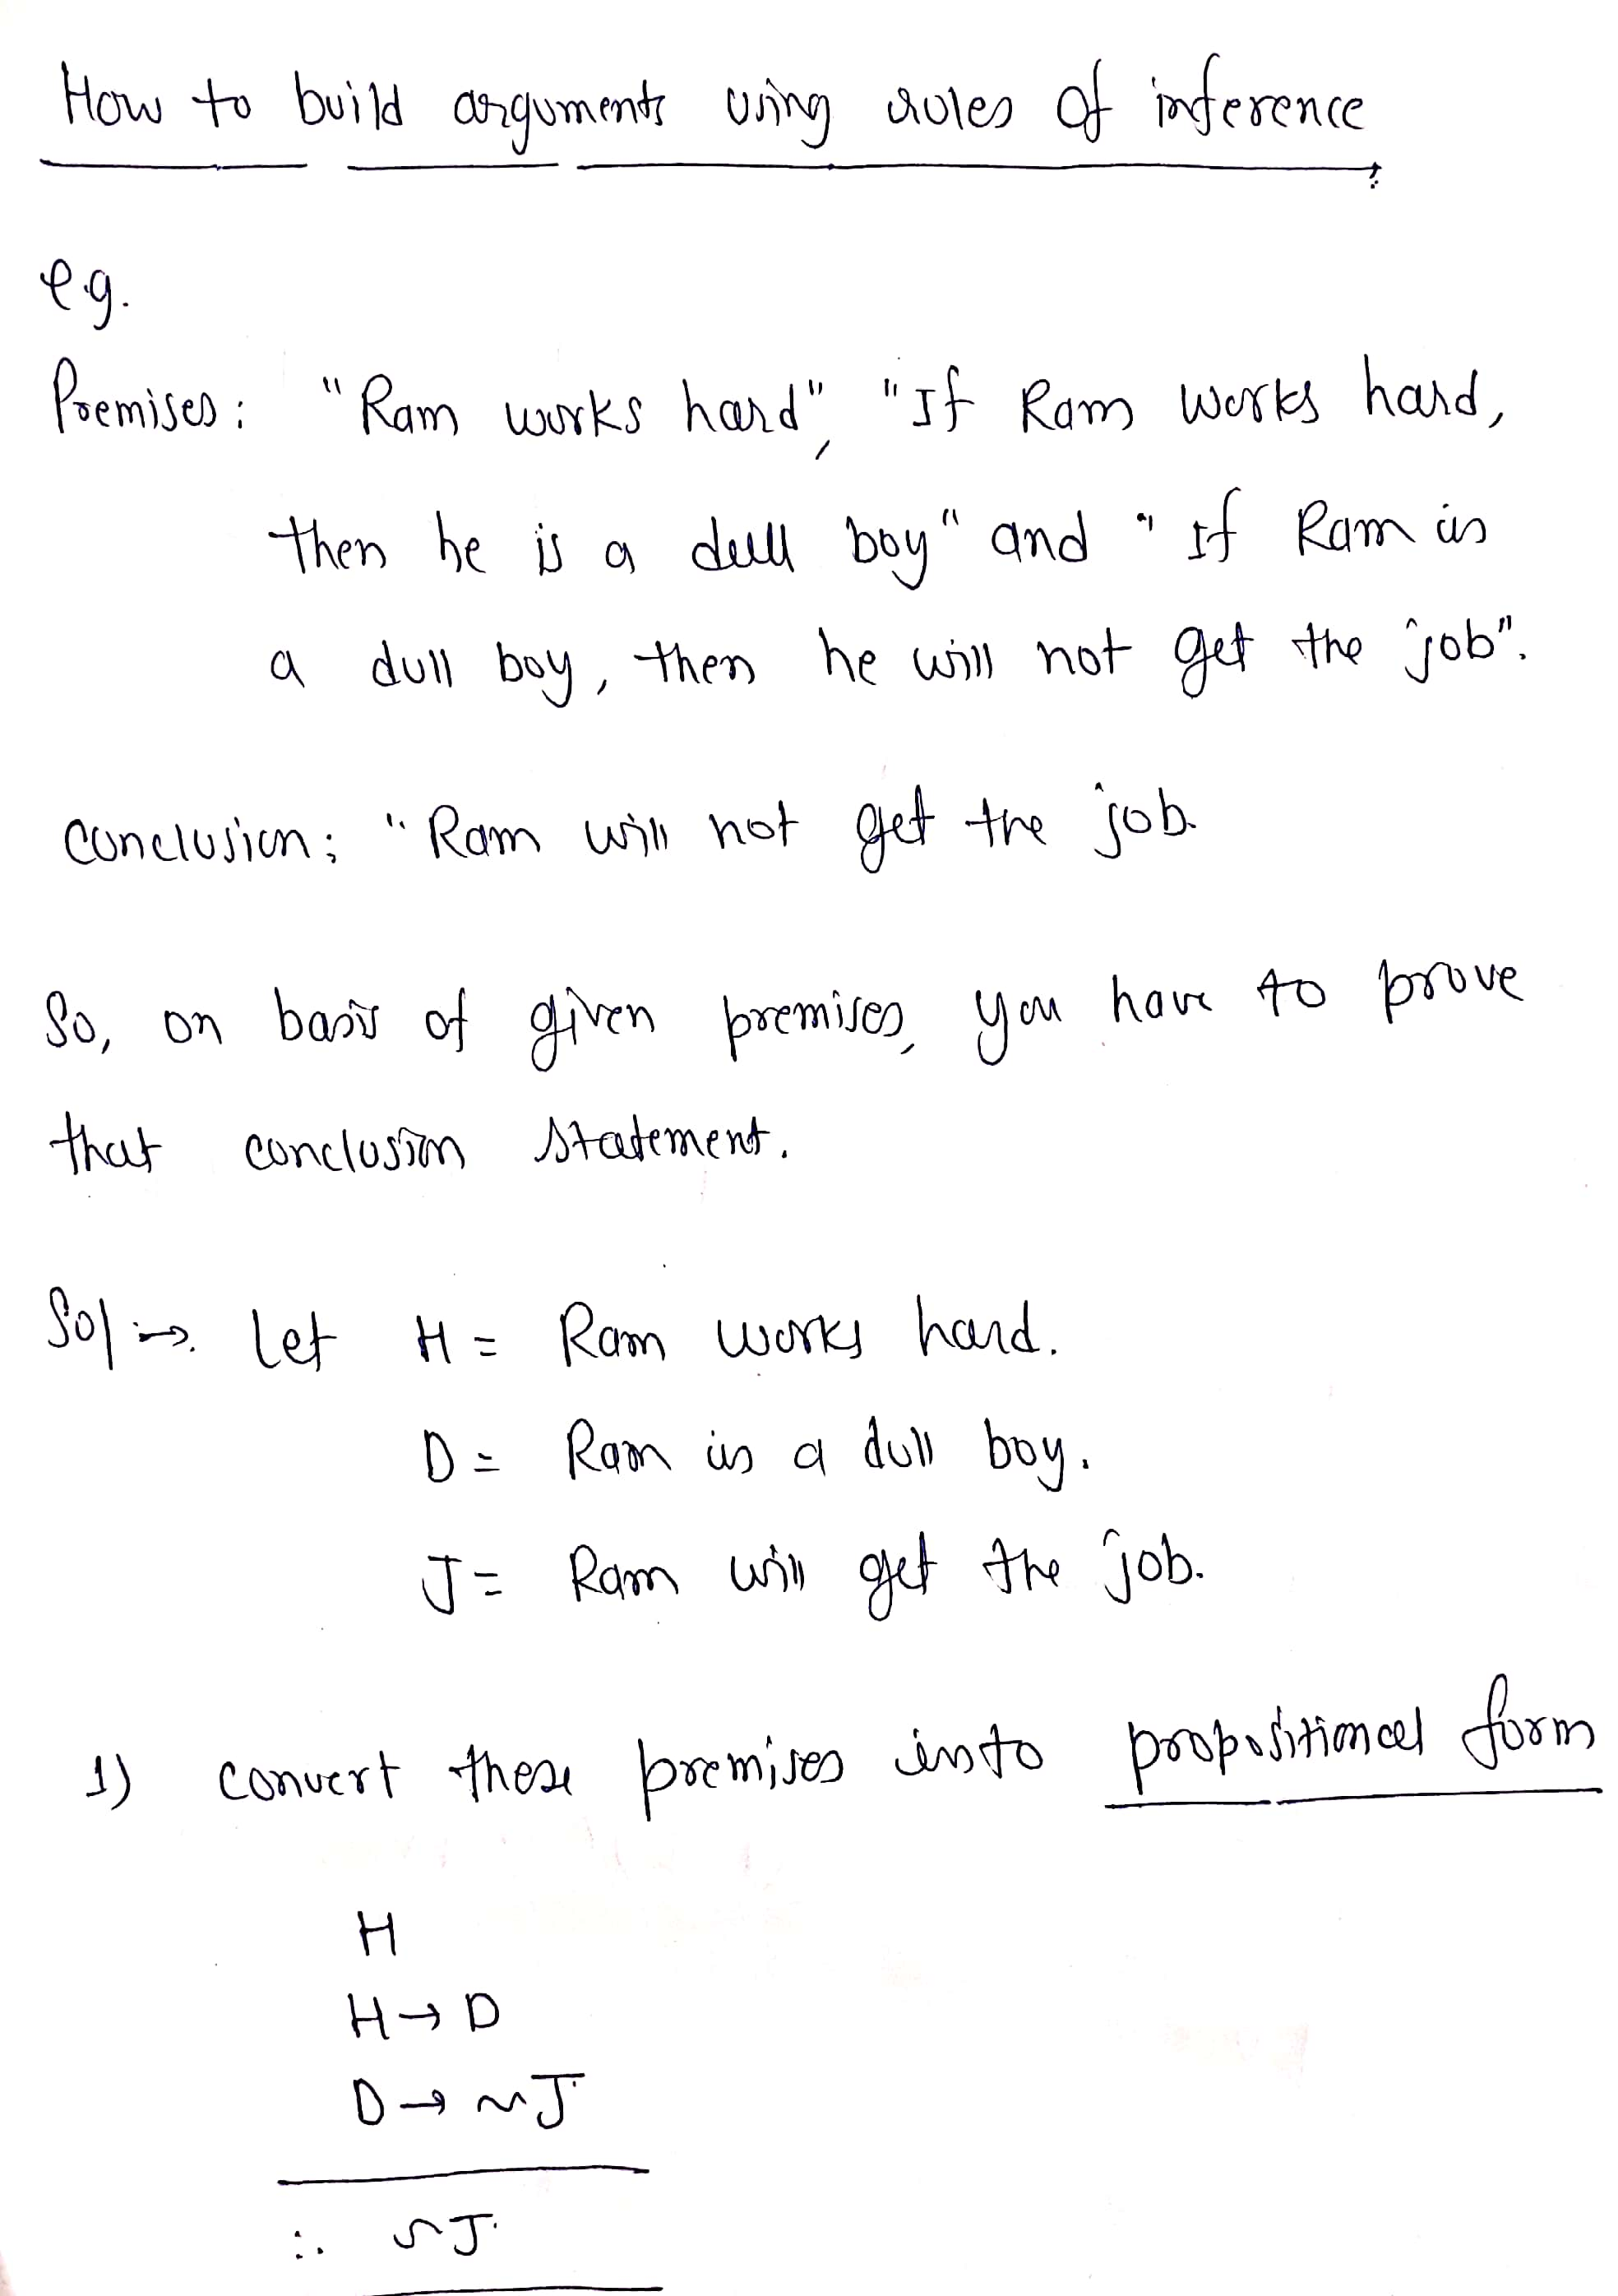 How to build arguments using rules of inference
e.g.
Premises: "Ram works hard", "If Ram works hard,
then he is a dull boy" and "If Ram is
a dull boy, then he will not get the job".
Conclusion: "Ram will not get the job.
So, on basis of given premises, you have to prove
that conclusion statement.
Sol:→. Let H = Ram works hard.
D = Ram is a dull boy.
J = Ram will get the job.
1) convert these premises into propositional form
H
H → D
D → ~J
∴ ~J